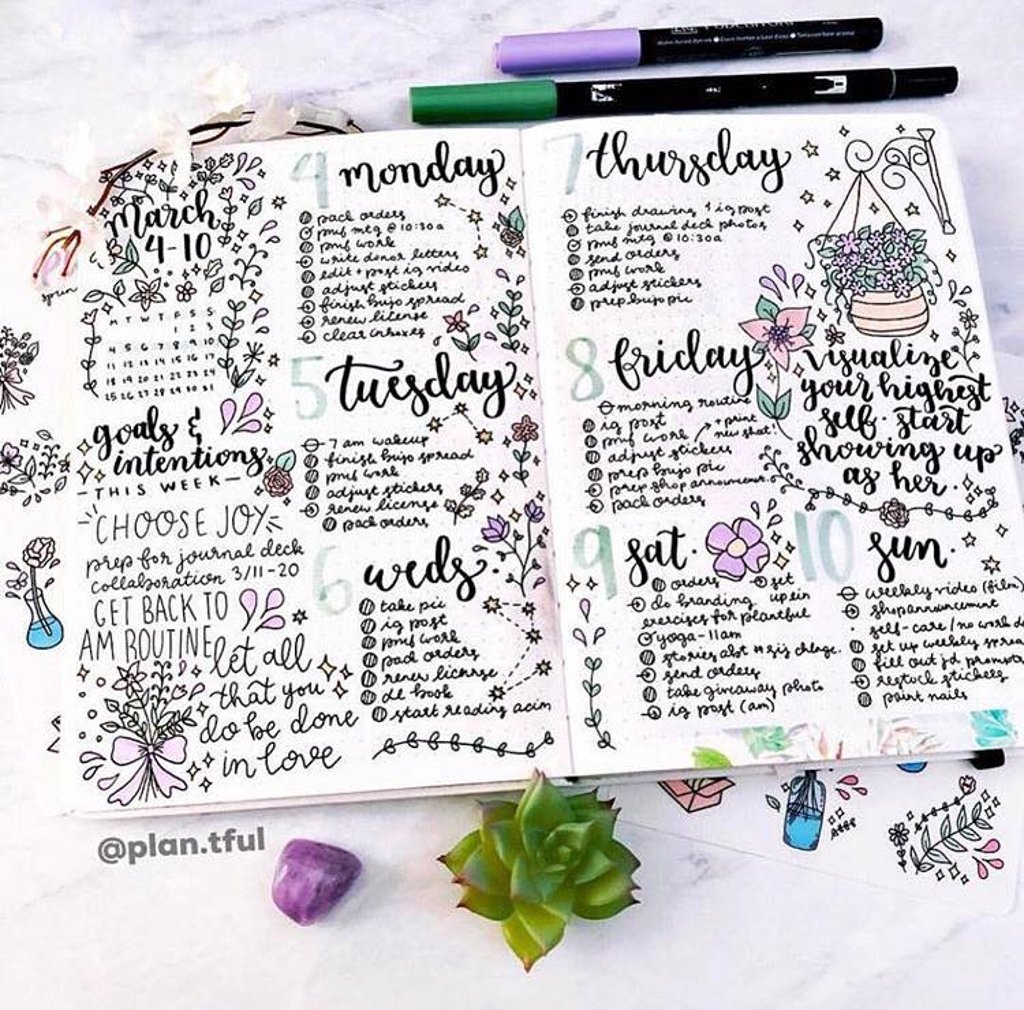 March
4-10
M T W T F S S
1 2 3
4 5 6 7 8 9 10
11 12 13 14 15 16 17
18 19 20 21 22 23 24
25 26 27 28 29 30 31
goals &
intentions
- THIS WEEK -
CHOOSE JOY
prep for journal deck
collaboration 3/11-20
GET BACK TO
AM ROUTINE
let all
that you
do be done
in love
4 monday
pack orders
pmf mtg @ 10:30a
pmf work
write donor letters
edit + post ig video
adjust stickers
finish bujo spread
renew license
clear inboxes
5 tuesday
7 am wakeup
finish bujo spread
pmf work
adjust stickers
renew license
pack orders
6 weds.
take pic
ig post
pmf work
pack orders
renew license
de book
start reading acim
7 thursday
finish drawing & ig post
take journal deck photos
pmf mtg @ 10:30a
send orders
pmf work
adjust stickers
prep bujo pic
8 friday
morning routine
ig post
pmf work
+ print
new shot!
adjust stickers
prep bujo pic
prep shop announcement
pack orders
visualize
your highest
self. start
showing up
as her.
9 sat.
orders
get
do branding
up in
exercises for plantful
yoga - 11am
stories abt
send orders
take giveaway photo
ig post (am)
10 sun.
weekly video (film)
shop announcement
self-care / no work
set up weekly
fill out jd
restock stickers
paint nails
@plan.tful